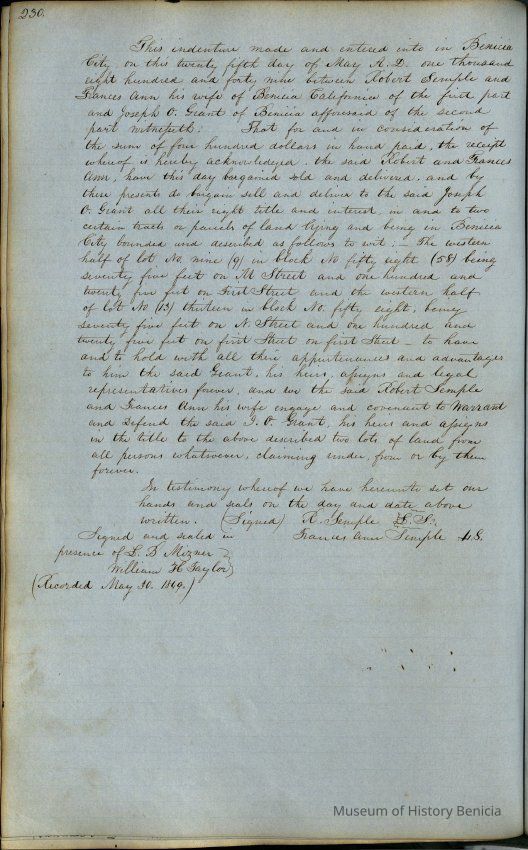 230.
This indenture made and entered into in Benicia
City on this twenty fifth day of May A.D. one thousand
eight hundred and forty nine between Robert Semple and
Frances Ann his wife of Benicia California of the first part
and Joseph O. Grant of Benicia afforesaid of the second
part witnesseth. That for and in consideration of
the sum of four hundred dollars in hand paid, the receipt
whereof is hereby acknowledged. the said Robert and Frances
Ann, have this day bargained sold and delivered, and by
these presents do bargain sell and deliver to the said Joseph
O. Grant all their right title and interest, in and to two
certain tracts or parcels of land lying and being in Benicia
City bounded and described as follows to wit; – The western
half of lot No. nine (9) in block No fifty eight (58) being
seventy five feet on M Street and one hundred and
twenty five feet on First Street and the western half
of lot No (13) thirteen in block No. fifty eight, being
seventy five feet on N. Street and one hundred and
twenty five feet on first Street on first Street – to have
and to hold with all their appurtenances and advantages
to him the said Grant, his heirs, assigns and legal
representatives forever, and we the said Robert Semple
and Frances Ann his wife engage and covenant to Warrant
and defend the said J. O. Grant, his heirs and assigns
in the title to the above described two lots of land from
all persons whatsoever, claiming under, from or by them
forever.
In testimony whereof we have hereunto set our
hands and seals on the day and date above
written. (Signed) R. Semple L.S.
Signed and sealed in Frances Ann Semple L.S.
presence of L. B Mizner
William H Taylor)
(Recorded May 30. 1849.)
Museum of History Benicia